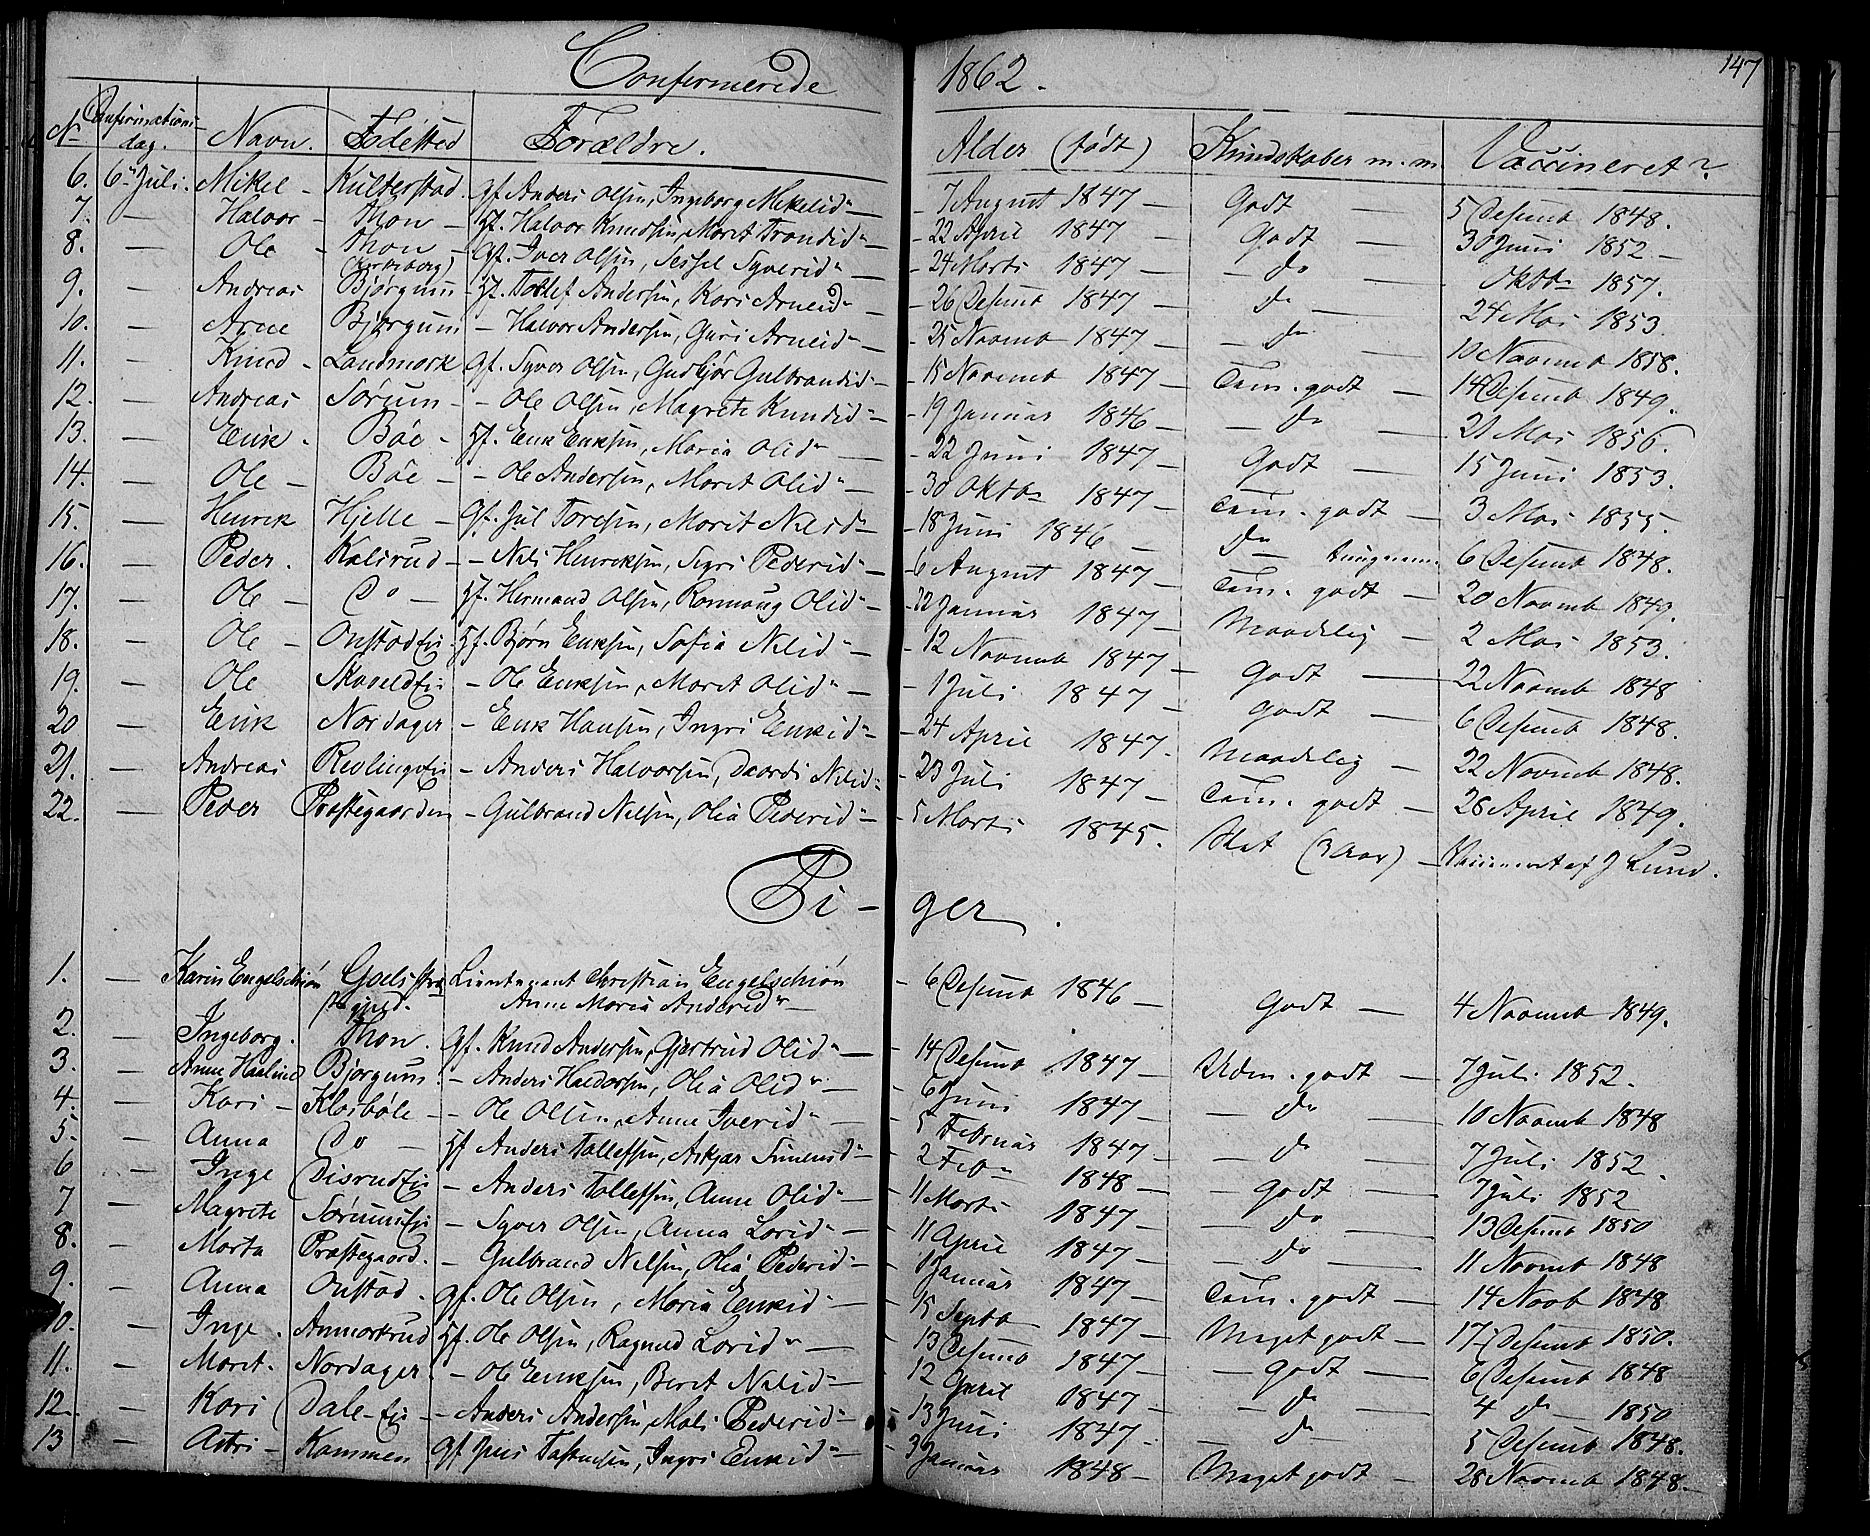 Confirmerede 1862.
147
N Confirmations dag. Navn. Fødested Forældre. Alder (født) Kundskaber m. m. Vaccineret?
6. 6 Juli. Mikel - Kulterstad. Gf. Anders Olsen, Ingeborg Mikelsd - 7 August 1847 - Godt - 5 Desemb 1848.
7. - Halvor - Thon - Hf. Halvor Knudsen, Marit Trondsd - 22 April 1847 - Godt - 30 Juni 1852 -
8. - Ole - Thon - Gf. Iver Olsen, Sessel Syversd - 24 Marts 1847 - do - Oktb 1857.
9. - Andreas Bjørgum - Hf. Tollef Andersen, Kari Arnesd - 26 Desemb 1847 - do - 24 Mai 1853.
10. - Arne Bjørgum - Halvor Andersen, Guri Arnesd - 25 Novemb 1847 - do - 10 Novemb 1858.
11. - Knud - Landmark Gf. Syver Olsen, Gudbjør Gulbrandsd - 15 Novemb 1847 - Tem. godt - 14 Desemb 1849.
12. - Andreas Sørum - - Ole Olsen, Magrete Knudsd - 19 Januar 1846 - do - 21 Mai 1856.
13. - Erik - Bøe - Hf. Erik Eriksen, Maria Olsd - 22 Juni 1847 - Godt - 15 Juni 1853.
14. - Ole - Bøe - - Ole Andersen, Marit Olsd - 30 Oktb 1847 - Tem. godt - 3 Mai 1855.
15. - Henrik Hjelle - Gf. Jul Toresen, Marit Nilsd - 18 Juni 1846 - do - 6 Desemb 1848.
16. - Peder. Kalsrud - - Nils Henriksen, Sigri Pedersd - 6 August 1847 - Tem. godt - 20 Novemb 1849.
17. - Ole - Do - Hf. Hermand Olsen, Rønnaug Olsd - 22 Januar 1847 - Maadelig - 2 Mai 1853.
18. - Ole - Onstad Ei Hf. Bjørn Eriksen, Sofia Nilsd - 12 Novemb 1847 - Godt - 22 Novemb 1848
19. - Ole Skaveld Ei - Ole Eriksen, Marit Olsd - 1 Juli 1847 - godt - 6 Desemb 1848.
20 - Erik Nordager - Erik Hansen, Ingri Eriksd - 24 April 1847. Maadelig - 22 Novemb 1848.
21. - Andreas Revlings Ei - Anders Halvorsen, Daardi Nilsd 23 Juli 1847 - Tem. godt - 28 April 1849.
22. - Peder Præstegaarden - Gulbrand Nilsen, Olia Pedersd - 5 Marts 1845. Slet (3 Aar) - Vaccineret af J Lund.
Pi - ger.
1. - Karin Engelschiøn Goels Præstegjeld. Lieutenant Christian Engelschiøn
Anne Maria Andersd - 6 Desemb 1846 - Godt - 4 Novemb 1849.
2. - Ingeborg. Thon. Gf. Knud Andersen, Gjertrud Olsd - 14 Desemb 1847 - Udm. godt - 7 Juli 1852.
3. - Anne Bjørgum. - Anders Haldorsen, Olia Olsd - 6 Juni 1847 - do - 10 Novemb 1848
4. - Kari - Klosbøle - - Ole Olsen, Anne Iversd - 5 Februar 1847 - do - 7 Juli 1852.
5. - Anna Do - Hf Anders Tollefsen, Askjær Simensd - 2 Feb 1848 - godt - 7 Juli 1852
6 - Inge Disrud Ei - Anders Tollefsen, Anne Olsd - 11 Marts 1847 - do - 13 Desemb 1850
7 - Magrete Sørums Ei - Syver Olsen, Anna Larsd - 11 April 1847 - do - 11 Novemb 1848
8. - Marta Præstegaard. - Gulbrand Nilsen, Olia Pedersd - 1 Januar 1847 - Tem. godt - 14 Novb 1848
9. - Anna Onstad. Gf. Ole Olsen, Maria Eriksd - 15 Septb 1847 - Meget godt - 17 Desemb 1850.
10. - Inge. Anmortrud Hf. Ole Olsen, Ragnild Larsd - 13 Desemb 1847 - godt - 6 Desemb 1848
11. - Marit. Nordager - Ole Eriksen, Berit Nilsd - 12 April 1847 - do - 4 do 1850
12. - Kari Dale-Ei - - Anders Andersen, Mali Pedersd - 13 Juni 1847. - do - 5 Desemb 1848.
13 - Astri - Kammen Gf Jens Tostensen, Ingri Eriksd - 3 Januar 1848 - Meget godt - 28 Novemb 1848. -